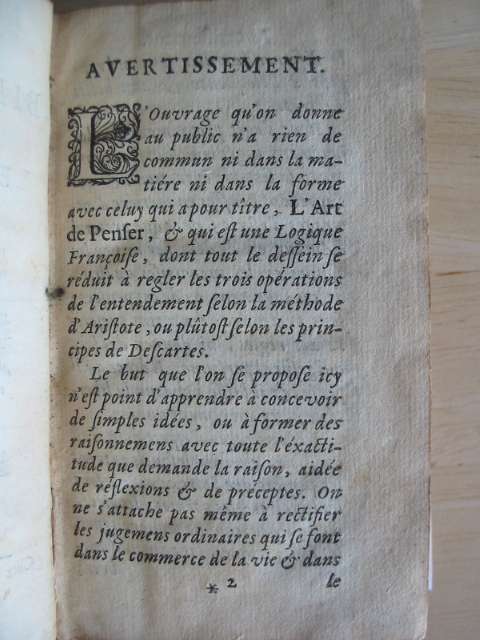 AVERTISSEMENT.
L'Ouvrage qu'on donne
au public n'a rien de
commun ni dans la ma-
tiére ni dans la forme
avec celuy qui a pour tître, L'Art
de Penſer, & qui eſt une Logique
Françoiſe, dont tout le deſſein ſe
réduit à regler les trois opérations
de l'entendement ſelon la méthode
d'Ariſtote, ou plûtoſt ſelon les prin-
cipes de Deſcartes.
Le but que l'on ſe propoſe icy
n'eſt point d'apprendre à concevoir
de ſimples idées, ou à former des
raiſonnemens avec toute l'éxacti-
tude que demande la raiſon, aidée
de réflexions & de préceptes. On
ne s'attache pas même à rectifier
les jugemens ordinaires qui ſe font
dans le commerce de la vie & dans
* 2 le